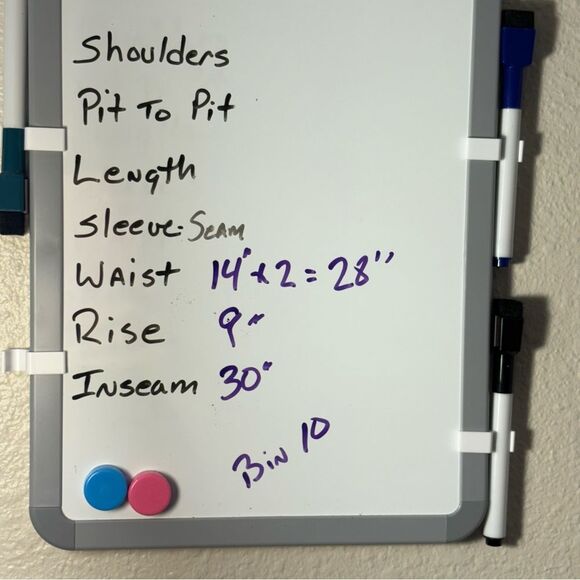 Shoulders
Pit To Pit
Length
Sleeve-Seam
Waist 14" x 2 = 28"
Rise 9"
Inseam 30"
Bin 10